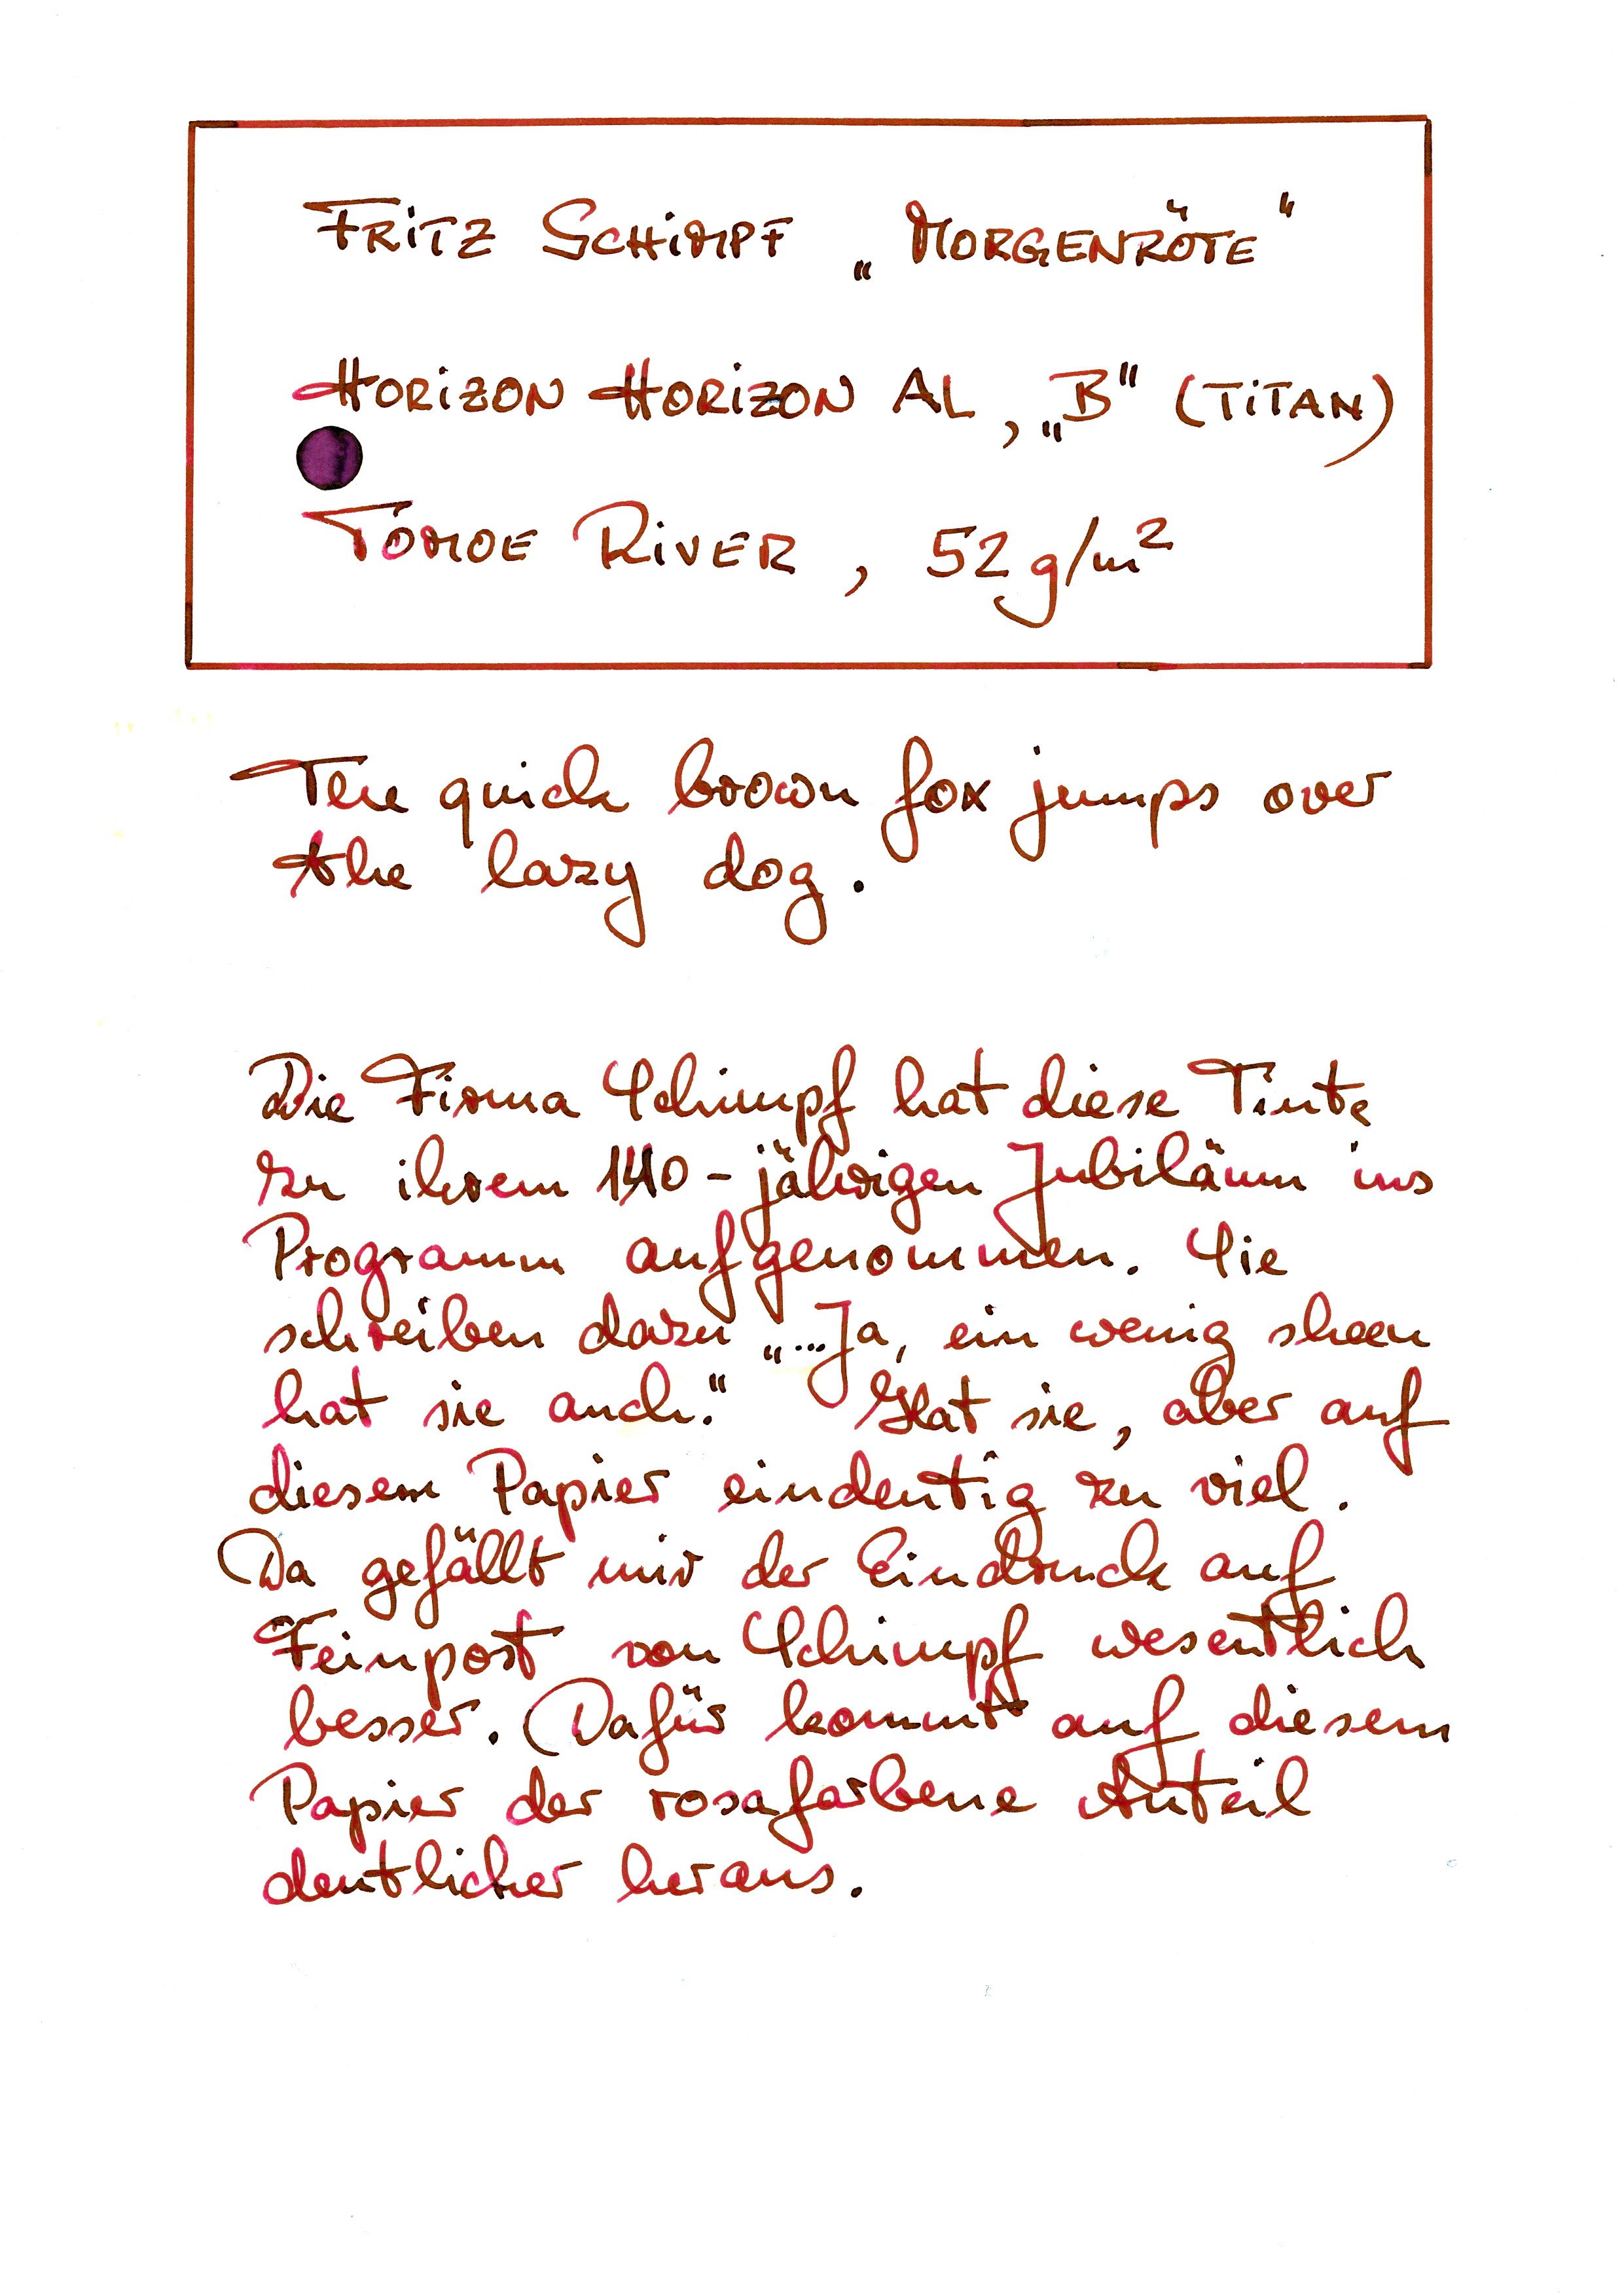 FRiTZ SCHiMPF „MORGENRÖTE“
HORIZON HORIZON AL, „B“ (TiTAN)
TOMOE RiVER, 52 g/m²
The quick brown fox jumps over
the lazy dog.
Die Firma Schimpf hat diese Tinte
zu ihrem 140-jährigen Jubiläum ins
Programm aufgenommen. Sie
schreiben dazu „...Ja, ein wenig sheen
hat sie auch.“ Hat sie, aber auf
diesem Papier eindeutig zu viel.
Da gefällt mir der Eindruck auf
Feinpost von Schimpf wesentlich
besser. (Dafür kommt auf diesem
Papier der rosafarbene Anteil
deutlicher heraus.